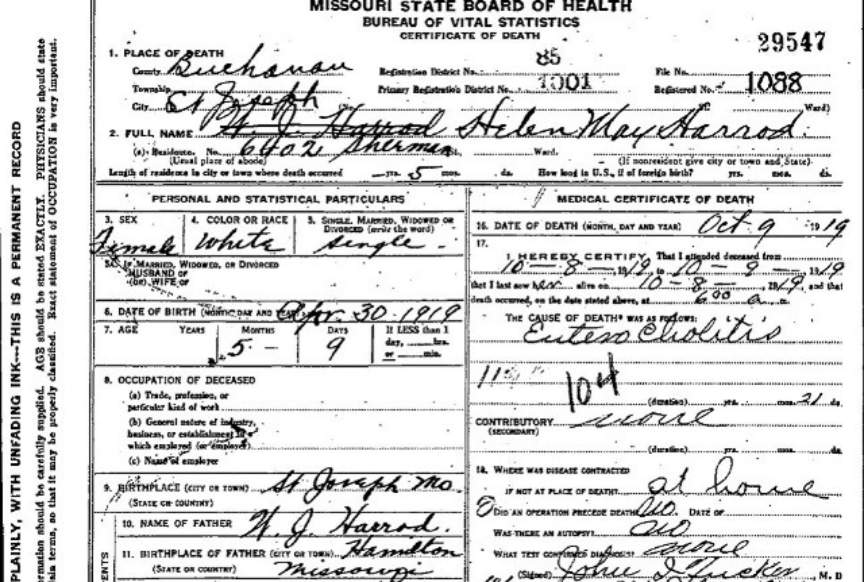 MISSOURI STATE BOARD OF HEALTH
BUREAU OF VITAL STATISTICS
CERTIFICATE OF DEATH
29547
1. PLACE OF DEATH
County Buchanan Registration District No. 85 File No.
Township Primary Registration District No. 1001 Registered No. 1088
City St Joseph Ward)
2. FULL NAME W. J. Harrod Helen May Harrod.
(a) Residence. No. 6402 Sherman St. Ward.
(Usual place of abode) (If nonresident give city or town and State)
Length of residence in city or town where death occurred yrs. 5 mos. ds. How long in U.S., if of foreign birth? yrs. mos. ds.
PERSONAL AND STATISTICAL PARTICULARS
3. SEX 4. COLOR OR RACE 5. SINGLE, MARRIED, WIDOWED OR
DIVORCED (write the word)
Female White Single
5a. IF MARRIED, WIDOWED, OR DIVORCED
HUSBAND OF
(OR) WIFE OF
6. DATE OF BIRTH (MONTH, DAY AND YEAR) Apr. 30 1919
7. AGE YEARS MONTHS DAYS If LESS than 1
day, hrs.
or min.
5 9
8. OCCUPATION OF DECEASED
(a) Trade, profession, or
particular kind of work
(b) General nature of industry,
business, or establishment in
which employed (or employer)
(c) Name of employer
9. BIRTHPLACE (CITY OR TOWN) St Joseph Mo.
(STATE OR COUNTRY)
10. NAME OF FATHER W. J. Harrod.
11. BIRTHPLACE OF FATHER (CITY OR TOWN) Hamilton
(STATE OR COUNTRY) Missouri
MEDICAL CERTIFICATE OF DEATH
16. DATE OF DEATH (MONTH, DAY AND YEAR) Oct 9 1919
17.
I HEREBY CERTIFY, That I attended deceased from
10 - 8 - 1919, to 10 - 9 - 1919
that I last saw her alive on 10 - 8 - 1919, and that
death occurred, on the date stated above, at 6 00 a m.
THE CAUSE OF DEATH* WAS AS FOLLOWS:
Entero Cholitis
104
(duration) yrs. mos. 21 ds.
CONTRIBUTORY none
(SECONDARY)
(duration) yrs. mos. ds.
18. WHERE WAS DISEASE CONTRACTED
IF NOT AT PLACE OF DEATH? at home
DID AN OPERATION PRECEDE DEATH? no. DATE OF
WAS THERE AN AUTOPSY? no
WHAT TEST CONFIRMED DIAGNOSIS? none
(Signed) John I Tucker, M. D
PLAINLY, WITH UNFADING INK---THIS IS A PERMANENT RECORD
rmation should be carefully supplied. AGE should be stated EXACTLY. PHYSICIANS should state
lain terms, so that it may be properly classified. Exact statement of OCCUPATION is very important.
ENTS